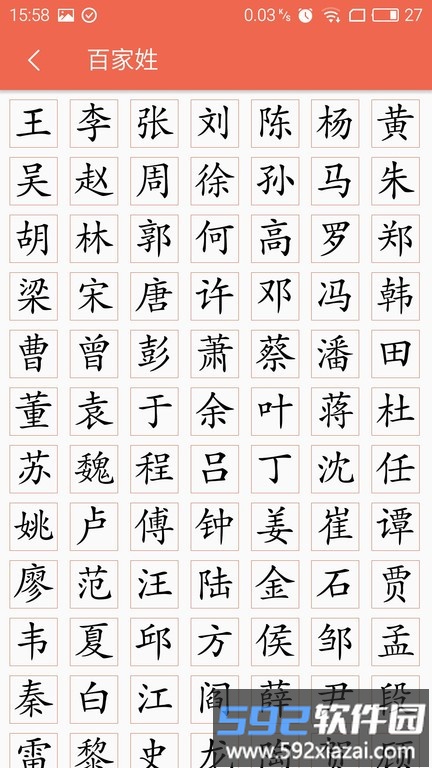 15:58 0.03 K/s 27
百家姓
王 李 张 刘 陈 杨 黄
吴 赵 周 徐 孙 马 朱
胡 林 郭 何 高 罗 郑
梁 宋 唐 许 邓 冯 韩
曹 曾 彭 萧 蔡 潘 田
董 袁 于 余 叶 蒋 杜
苏 魏 程 吕 丁 沈 任
姚 卢 傅 钟 姜 崔 谭
廖 范 汪 陆 金 石 贾
韦 夏 邱 方 侯 邹 孟
秦 白 江 阎 薛 尹 段
雷 黎 史 龙 陶 贺 顾
592软件园
www.592xiazai.com